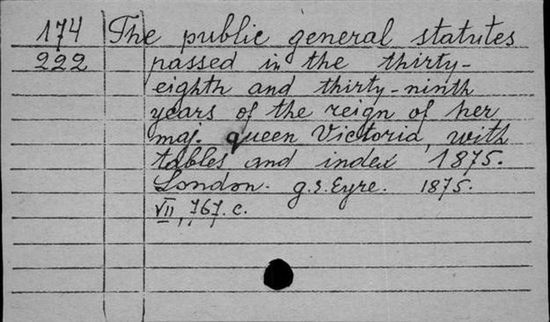 174 The public general statutes
222 passed in the thirty-
eighth and thirty-ninth
years of the reign of her
maj. queen Victoria, with
tables and index 1875.
London. g.E.Eyre. 1875.
VII, 767. c.